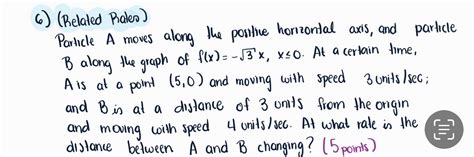 6) (Related Rates)
Particle A moves along the positive horizontal axis, and particle
B along the graph of f(x) = -√3 x, x≤0. At a certain time,
A is at a point (5,0) and moving with speed 3 units/sec;
and B is at a distance of 3 units from the origin
and moving with speed 4 units/sec. At what rate is the
distance between A and B changing? (5 points)